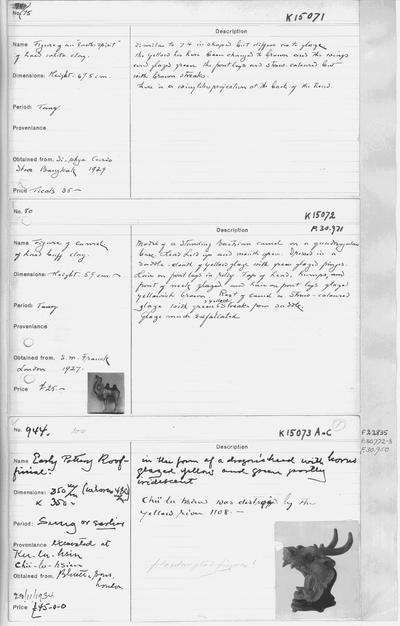 No. 75
K15071
Description
Name Figure of an "Earth-Spirit"
of hard white clay.
Dimensions: Height. 67.5 cm.
Period: Tang.
Provenience
Obtained from. Si-phya Curio
Store Bangkok 1929
Price Ticals 35-
similar to 74 in shape but differs as to glaze
the yellow has here been changed to brown and the wings
are glazed green. the front legs are straw-coloured but
with brown streaks.
there is a winglike projection at the back of the head.
No. 80
K15072
F.30.971
Description
Name Figure of Camel
of hard buff clay.
Dimensions: Height. 59 cm.
Period: Tang.
Provenience
Obtained from. S. M. Franck
London 1927.
Price £25.-
Model of a standing Bactrian camel on a quadrangular
base. Head held up and mouth open. Dressed in a
saddle-cloth of yellow glaze with green glazed fringes.
Hair on front legs in relief. Top of head, humps, and
front of neck glazed and hair on front legs glazed
yellowish brown. Rest of camel a straw-coloured
glaze with green & yellow streaks from saddle.
Glaze much exfoliated.
No. 944.
K15073 A-C
Description
F22835
F.30972-3
F.30950
Name Early Pottery Roof-
finial.
Dimensions: 350 m/m
x 350
Period: Sung or earlier
Provenience excavated at
Ku-lu-hsin
Chii-lu-hsien
Obtained from. Bluett & Sons,
London
29/11/1934
Price £45-0-0
in the form of a dragon's head with horns
glazed yellow and green partly
iridescent
Chü-lu hsien was destroyed by the
Yellow river 1108.-